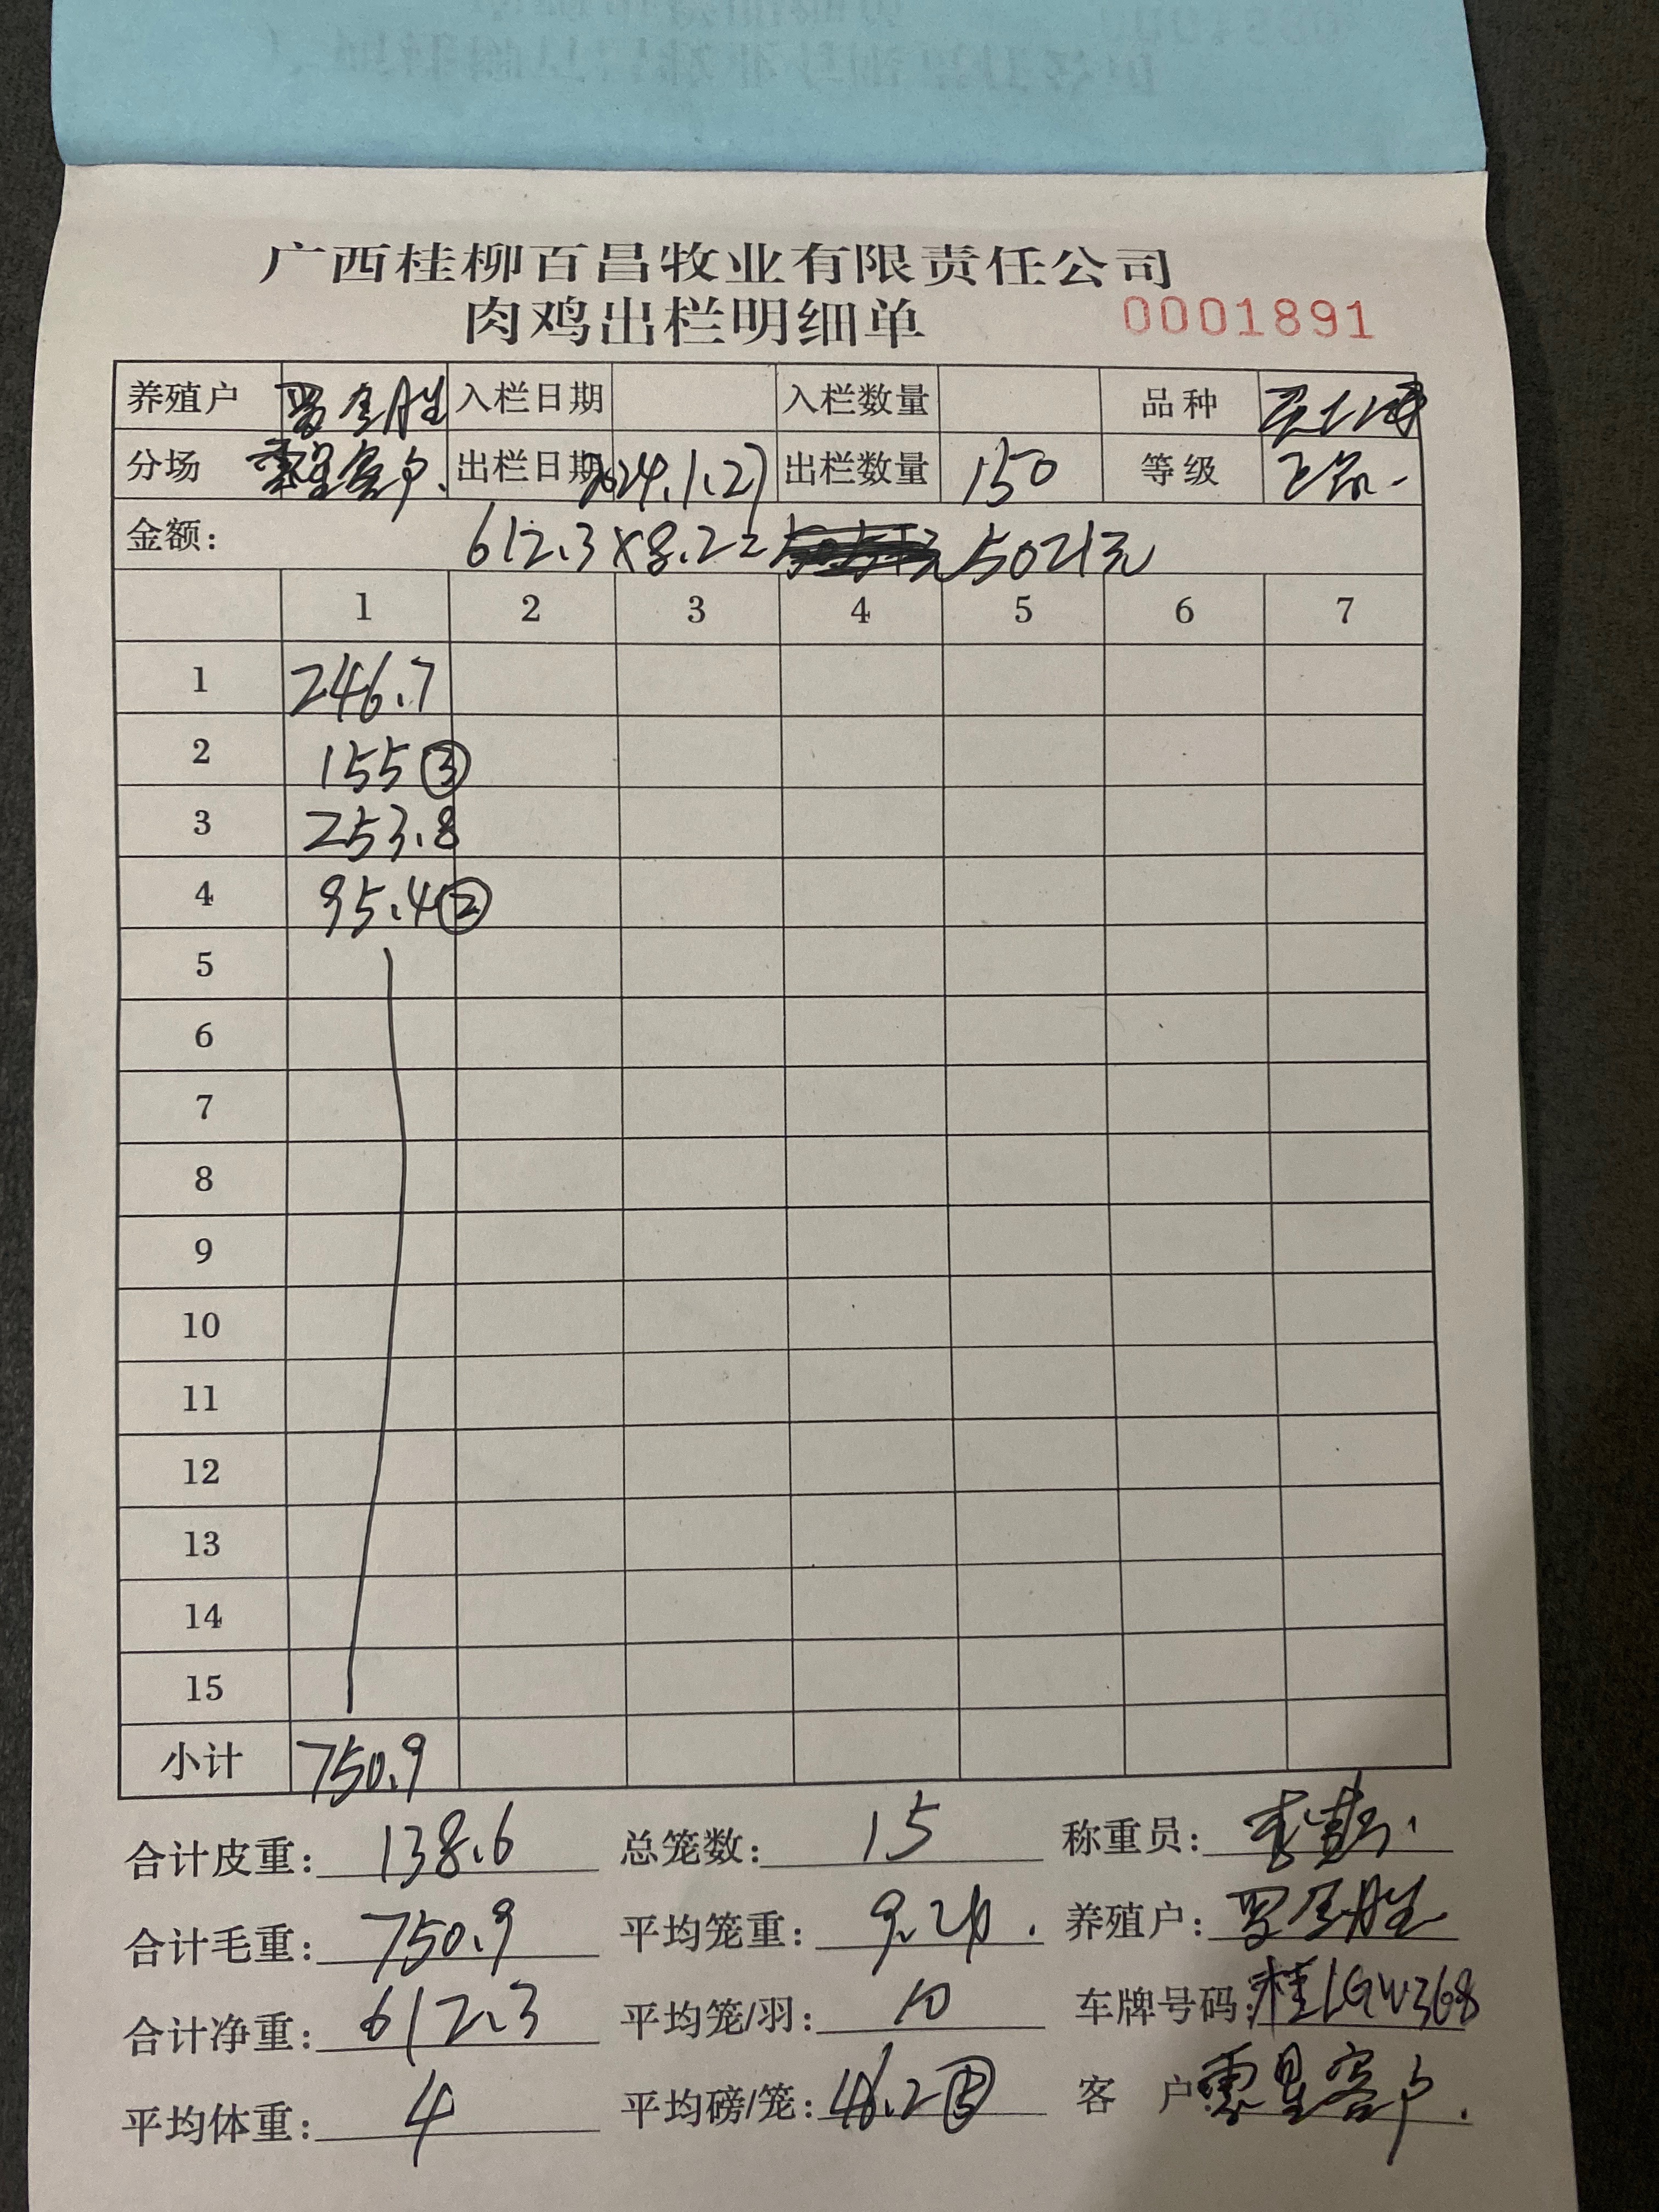 广西桂柳百昌牧业有限责任公司
肉鸡出栏明细单 0001891
养殖户 罗全胜 入栏日期 入栏数量 品种
分场 零星客户. 出栏日期 2024.1.27 出栏数量 150 等级
金额: 612.3×8.2= 5021元
1 2 3 4 5 6 7
1 246.7
2 155③
3 253.8
4 95.4②
5
6
7
8
9
10
11
12
13
14
15
小计 750.9
合计皮重: 138.6 总笼数: 15 称重员:
合计毛重: 750.9 平均笼重: 9.24. 养殖户: 罗全胜
合计净重: 612.3 平均笼/羽: 10 车牌号码: 桂LGW368
平均体重: 4 平均磅/笼: 46.2⑤ 客户 零星客户.